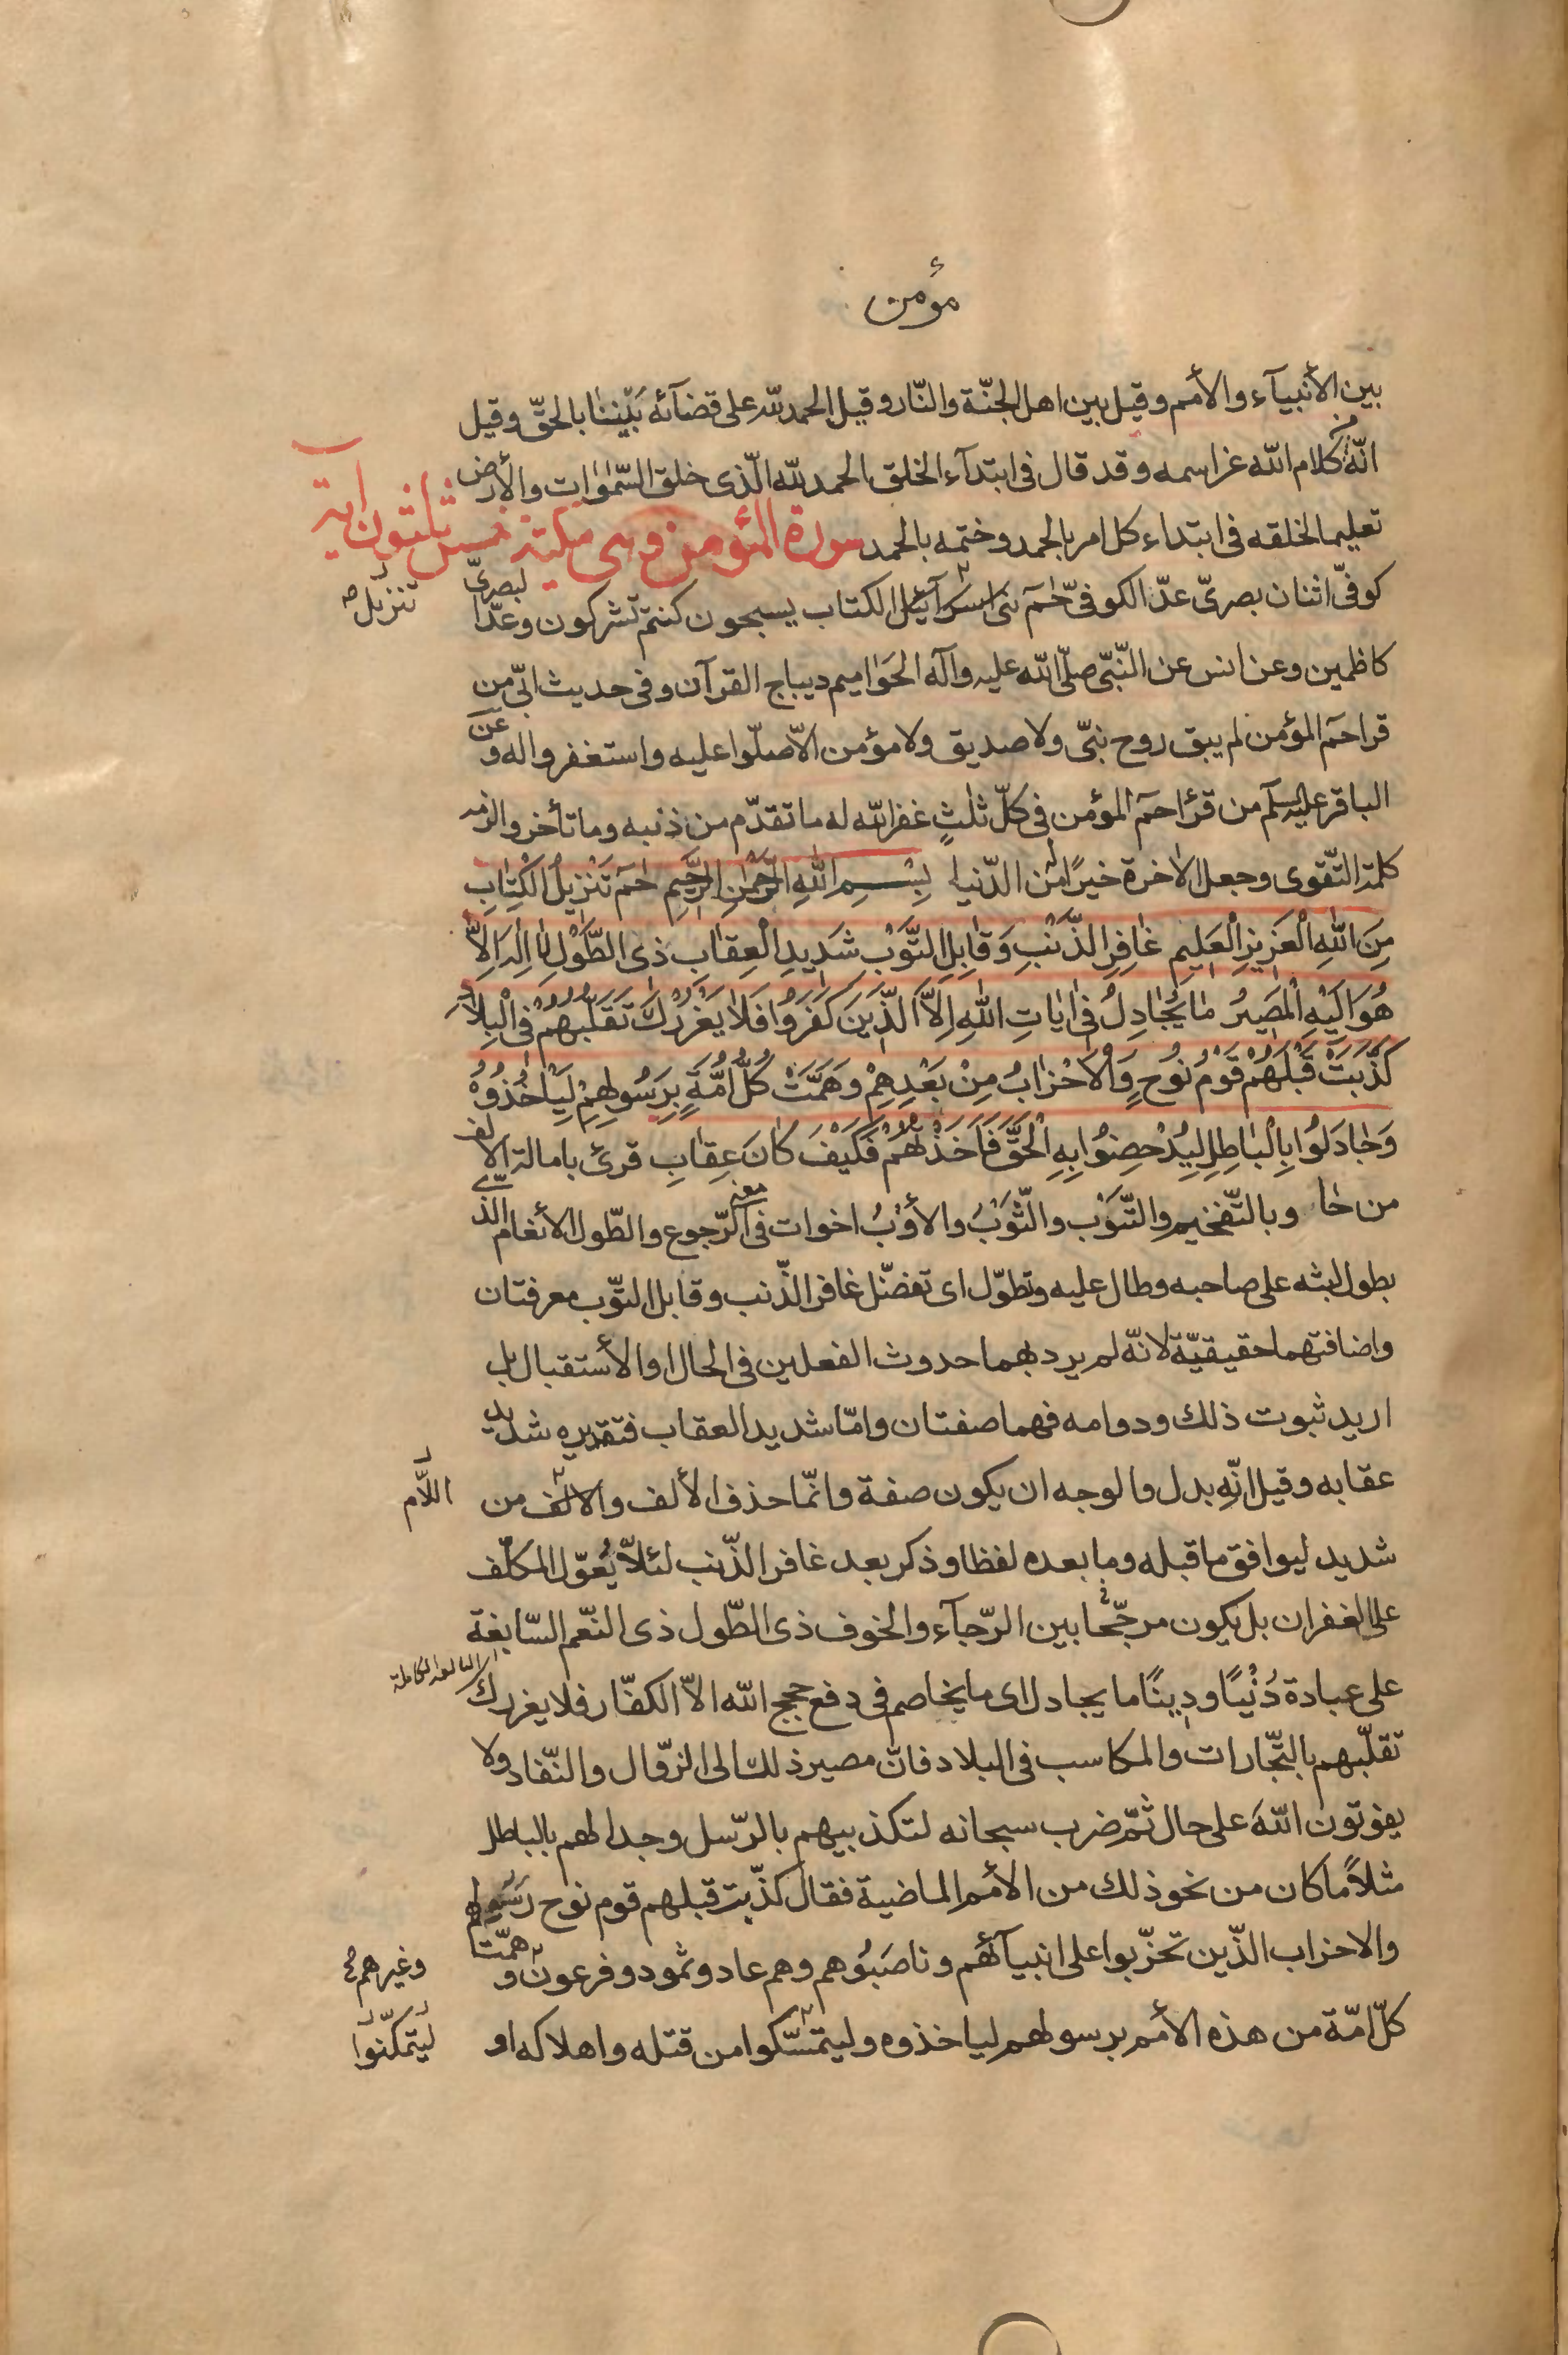 مؤمن
بين الأنبيآء والأمم وقيل بين اهل الجنّة والنّار وقيل الحمد لله على قضآئه بَيْننٰا بالحقّ وقيل
انّه من كلام الله عزاسمه وقد قال فى ابتدآء الخلق الحمد لله الّذى خلق السّمٰوٰات والأرض
تعليما لخلقه فى ابتداء كل امر بالحمد وختمه بالحمد سورة المؤمن وهى مكيّة خمس ثلثون آية
كوفىّ اثنان بصرىّ عدّ الكوفىّ حٰمۤ بنى اسرآئيل الكتاب يسبحون كنتم تشركون وعدّا لبصرىّ
تنزيل
كاظمين وعن انس عن النّبىّ صلّى الله عليه وآله الحَوٰاميم ديباج القرآن وفى حديث ابىّ من
قرا حمۤ المؤمن لم يبق روح نبىّ ولا صديق ولا مؤمن الاّ صلّوا عليه واستغفروا له وعن
الباقر عليه السلم من قرٔا حمۤ المؤمن فى كلّ ثلٰثٍ غفر الله له ما تقدّم من ذنبه وما تأخر والزمه
كلمة التّقوى وجعل الاٰخرة خيرًا له من الدّنيا بِسْمِ اللهِ الرَّحْمٰنِ الرَّحِيمِ حٰمۤ تَنْزِيلُ الْكِتٰابِ
مِنَ اللهِ الْعَزِيزِ الْعَلِيمِ غٰافِرِ الذَّنْبِ وَقٰابِلِ التَّوْبِ شَدِيدِ الْعِقٰابِ ذى الطَّوْلِ لٰا اِلٰهَ اِلاَّ
هُوَ اِلَيْهِ الْمَصِيرُ مٰا يُجٰادِلُ فى اٰيٰاتِ اللهِ اِلاَّ الَّذِينَ كَفَرُوا فَلاٰ يَغْرُرْكَ تَقَلُّبُهُمْ فى الْبِلاٰدِ
كَذَّبَتْ قَبْلَهُمْ قَوْمُ نُوحٍ وَالْاَحْزٰابُ مِنْ بَعْدِهِمْ وَهَمَّتْ كُلُّ اُمَّةٍ بِرَسُولِهِمْ لِيَاْخُذُوهُ
وَجٰادَلُوا بِالْبٰاطِلِ لِيُدْحِضُوا بِهِ الْحَقَّ فَاَخَذْتُهُمْ فَكَيْفَ كٰانَ عِقٰابِ قرئ بامالة الالف
من حٰا وبالتّفخيم والتّوْب والثّوْبُ والأوْبُ اخوات فى معنى الرّجوع والطّول الأنعام الذّى
يطول لبثه على صاحبه وطال عليه وتطوّل اى تفضّل غافر الذّنب وقابل التّوب معرفتان
واضافتهما حقيقيّة لانّه لم يرد بهما حدوث الفعلين فى الحال او الأستقبال بل
اريد ثبوت ذلك ودوامه فهما صفتان وامّا شديد العقاب فتقديره شديد
عقابه وقيل انّه بدل والوجه ان يكون صفة وانّما حذف الألف والالف من
اللّام
شديد ليوافق ما قبله وما بعده لفظا وذكر بعد غافر الذّنب لئلاّ يُعوّل المكلّف
على الغفران بل يكون مرجّحا بين الرّجآء والخوف ذى الطّول ذى النّعم السّابغة
على عبادة دُنْيًا ودِينًا ما يجادل اى ما يخاصم فى دفع حجج الله الاّ الكفّار فلا يغررك
تقلّبهم بالتّجّارات والمكاسب فى البلاد فانّ مصير ذلك الى الزّوال والنّفاد ولا
يفوتون اللهَ على حال ثمّ ضرب سبحانه لتكذبيهم بالرّسل وجدالهم بالباطل
مثلاً ما كان من نحو ذلك من الأمم الماضية فقال كذّبت قبلهم قوم نوح رَسُولهم
والاحزاب الذّين تحزّبوا على انبيآئهم وناصَبُوهم وهم عاد وثمود وفرعون وهمّت
وغيرهم
كلّ امّة من هذه الأمم برسولهم لياخذوه وليتمسّكوا من قتله واهلاكه او
ليتمكّنوا